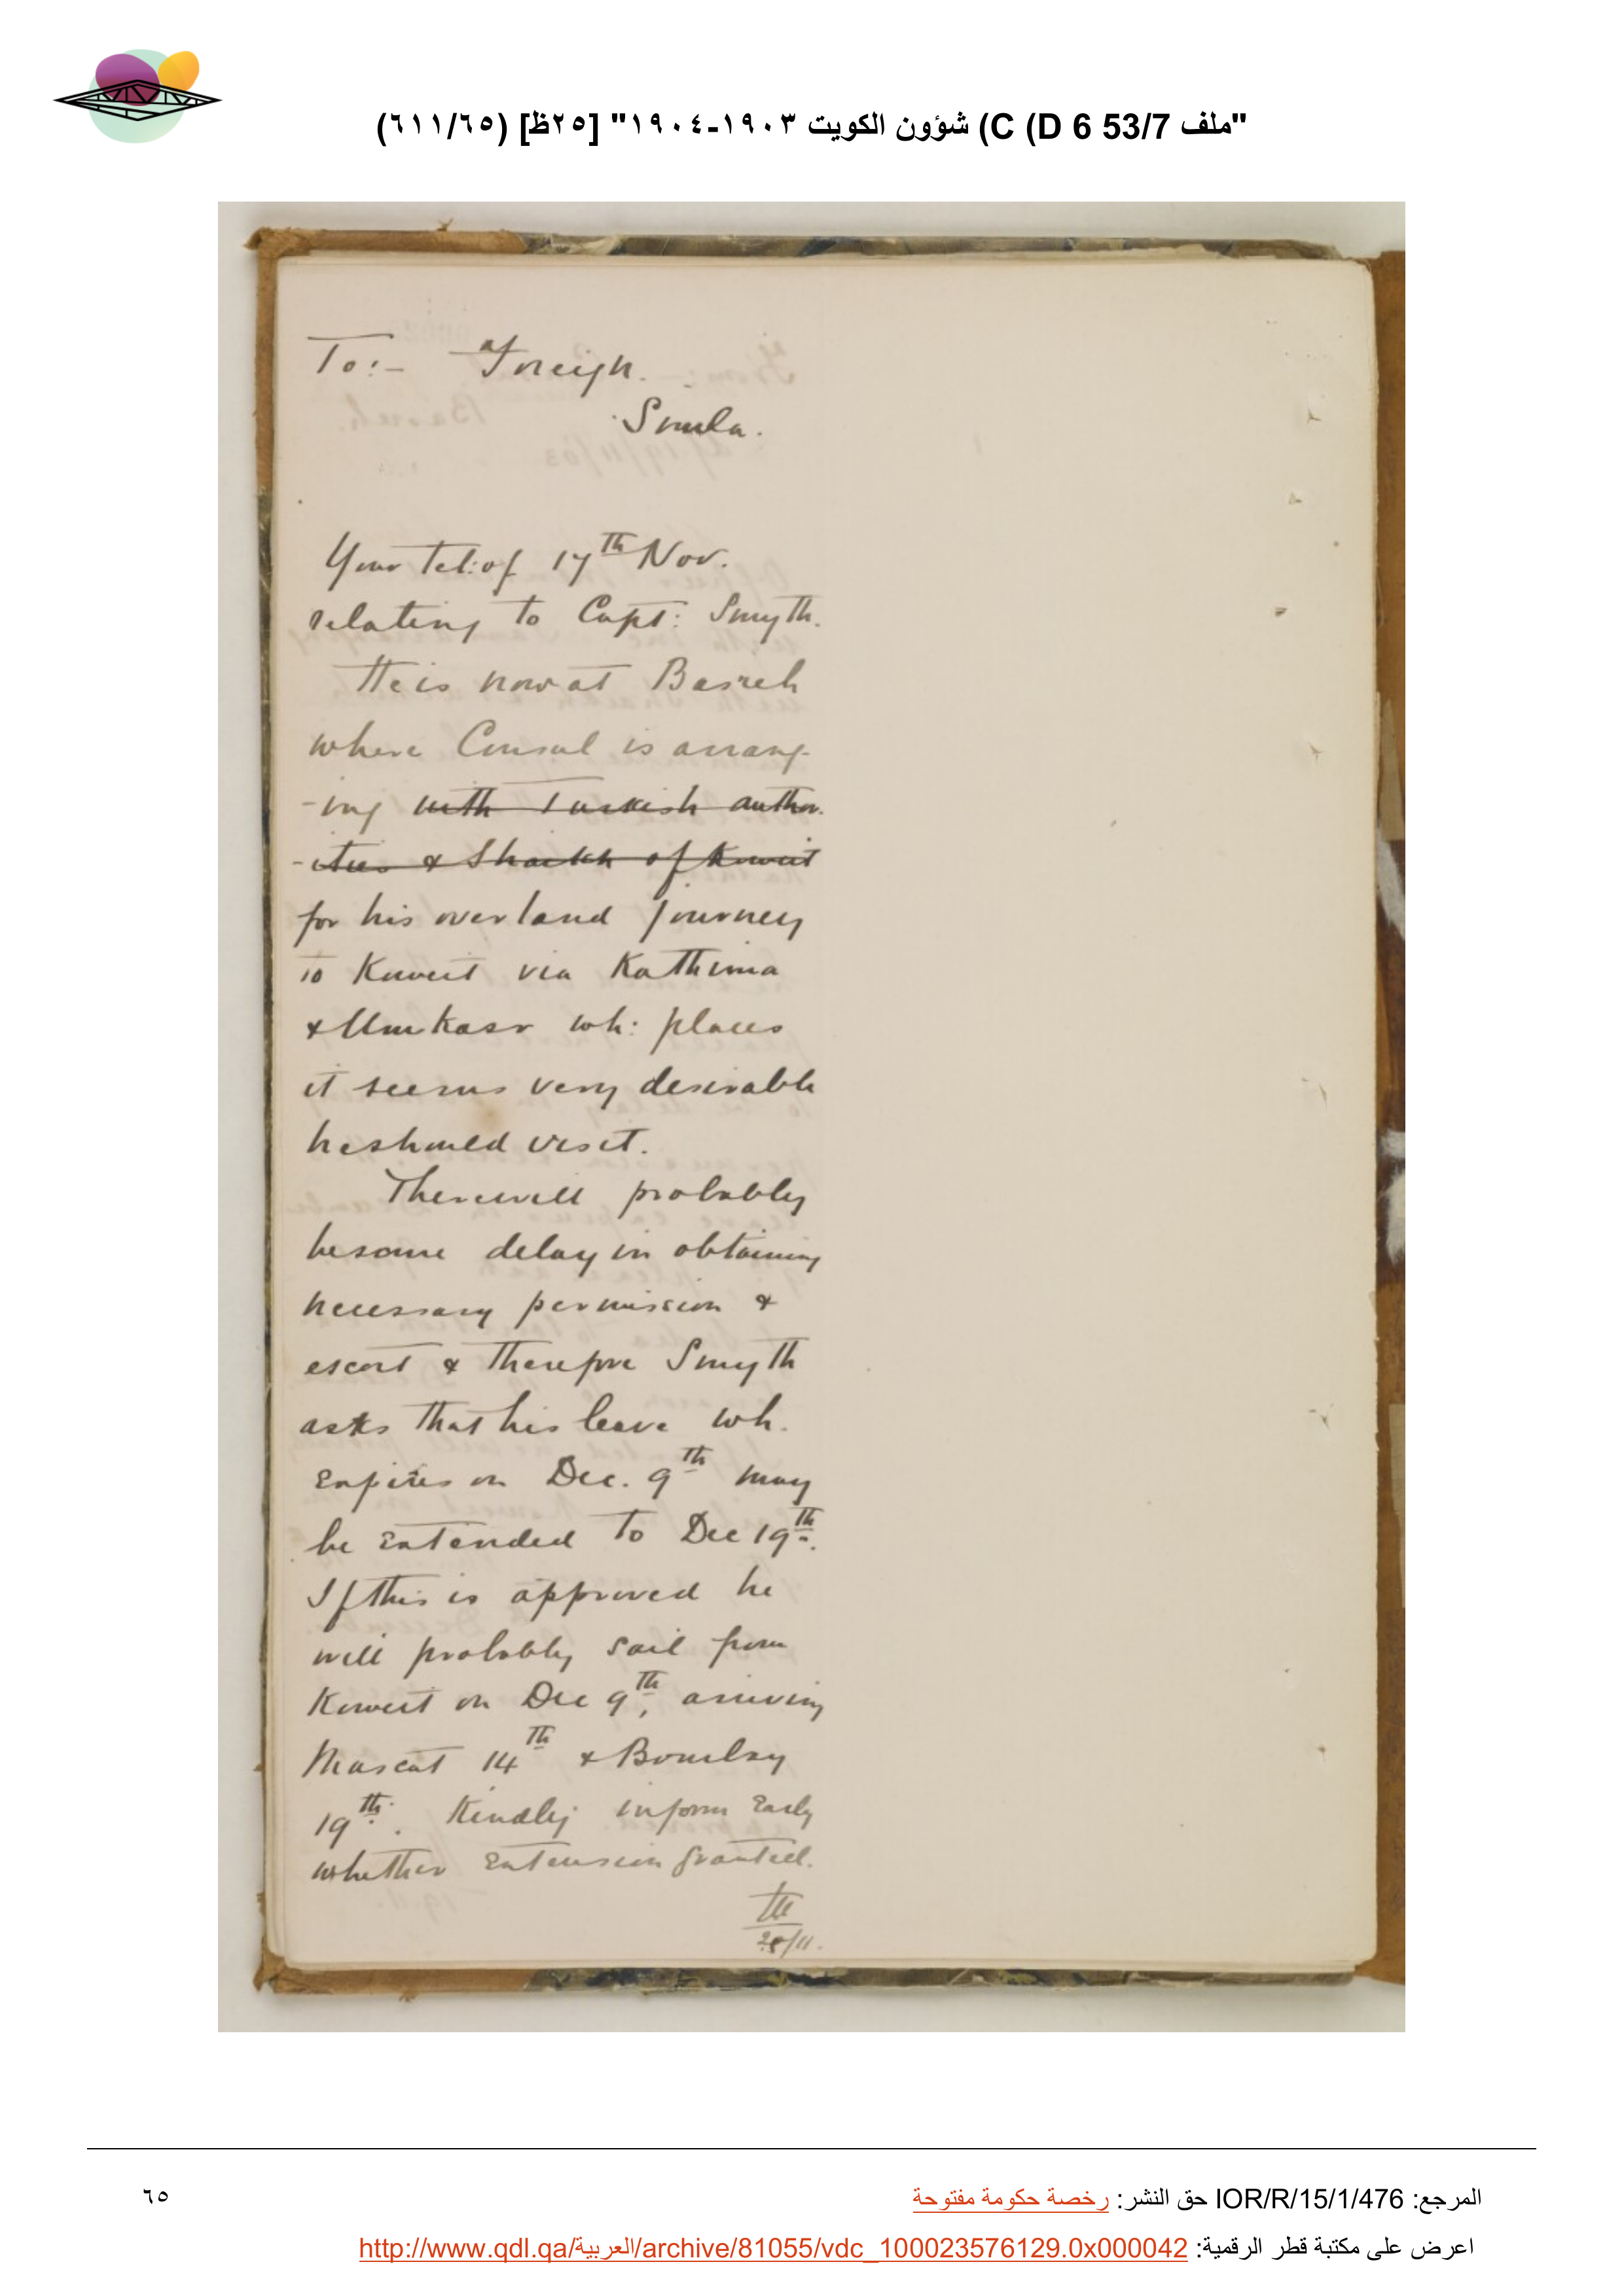 "ملف 53/7 C (D 6) شؤون الكويت ١٩٠٣-١٩٠٤" [٢٥ظ] (٦١١/٦٥)
To:- Foreign.
Simla.
Your tel: of 17th Nov.
relating to Capt: Smyth.
He is now at Basreh
where Consul is arrang-
-ing with Turkish author-
-ities & Shaikh of Kuweit
for his overland journey
to Kuweit via Kathima
& Umkasr wh: places
it seems very desirable
he should visit.
There will probably
be some delay in obtaining
necessary permission &
escort & therefore Smyth
asks that his leave wh.
expires on Dec. 9th may
be extended to Dec 19th.
If this is approved he
will probably sail from
Kuweit on Dec 9th, arriving
Mascat 14th & Bombay
19th. Kindly inform early
whether extension granted.
/11.
المرجع: IOR/R/15/1/476 حق النشر: رخصة حكومة مفتوحة
٦٥
اعرض على مكتبة قطر الرقمية: http://www.qdl.qa/العربية/archive/81055/vdc_100023576129.0x000042